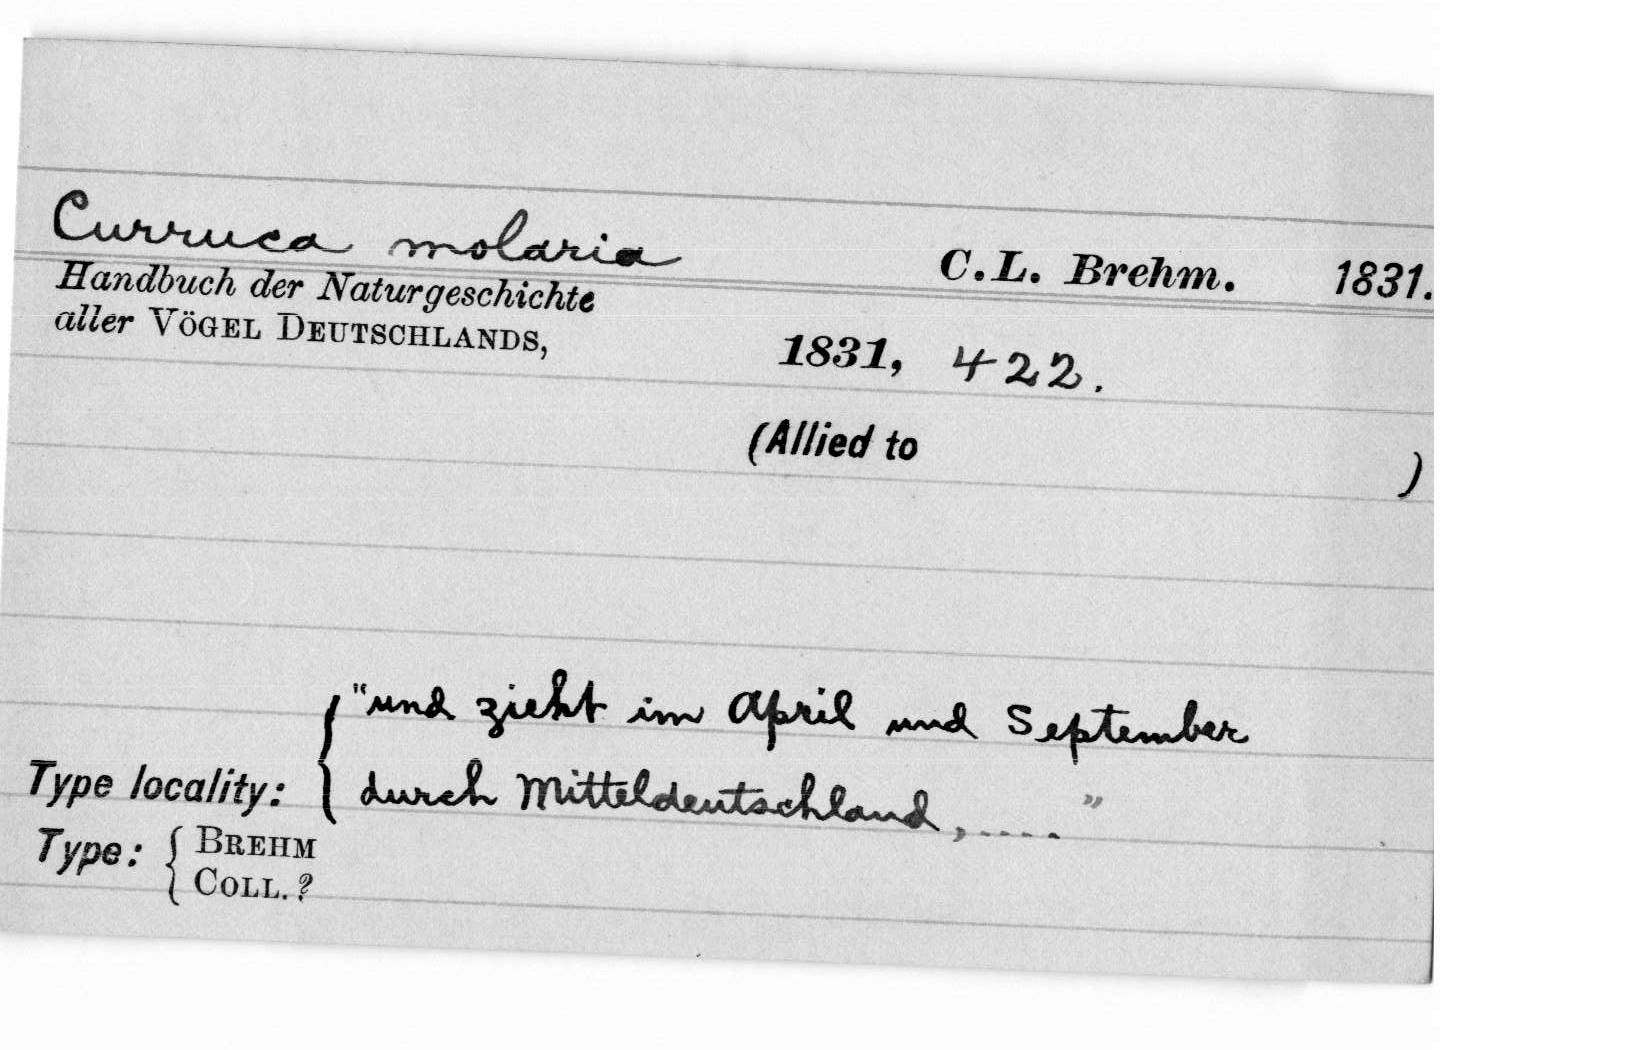 Curruca molaria C.L. Brehm. 1831.
Handbuch der Naturgeschichte
aller VÖGEL DEUTSCHLANDS,
1831, 422.
(Allied to )
"und zieht im April und September
Type locality: { durch Mitteldeutschland, .... "
Type: { BREHM
COLL. ?